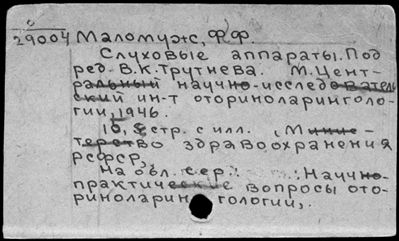 29004 Маломуж, Ф.Ф.
Слуховые аппараты. Под
ред. В.К. Трутнева. М. Цент-
ральный научно-исследователь-
ский ин-т оториноларинголо-
гии, 1946.
16, стр. с илл. , Минис-
терство здравоохранения
РСФСР,
На обл. сер.: Научно-
практические вопросы ото-
риноларингологии,.